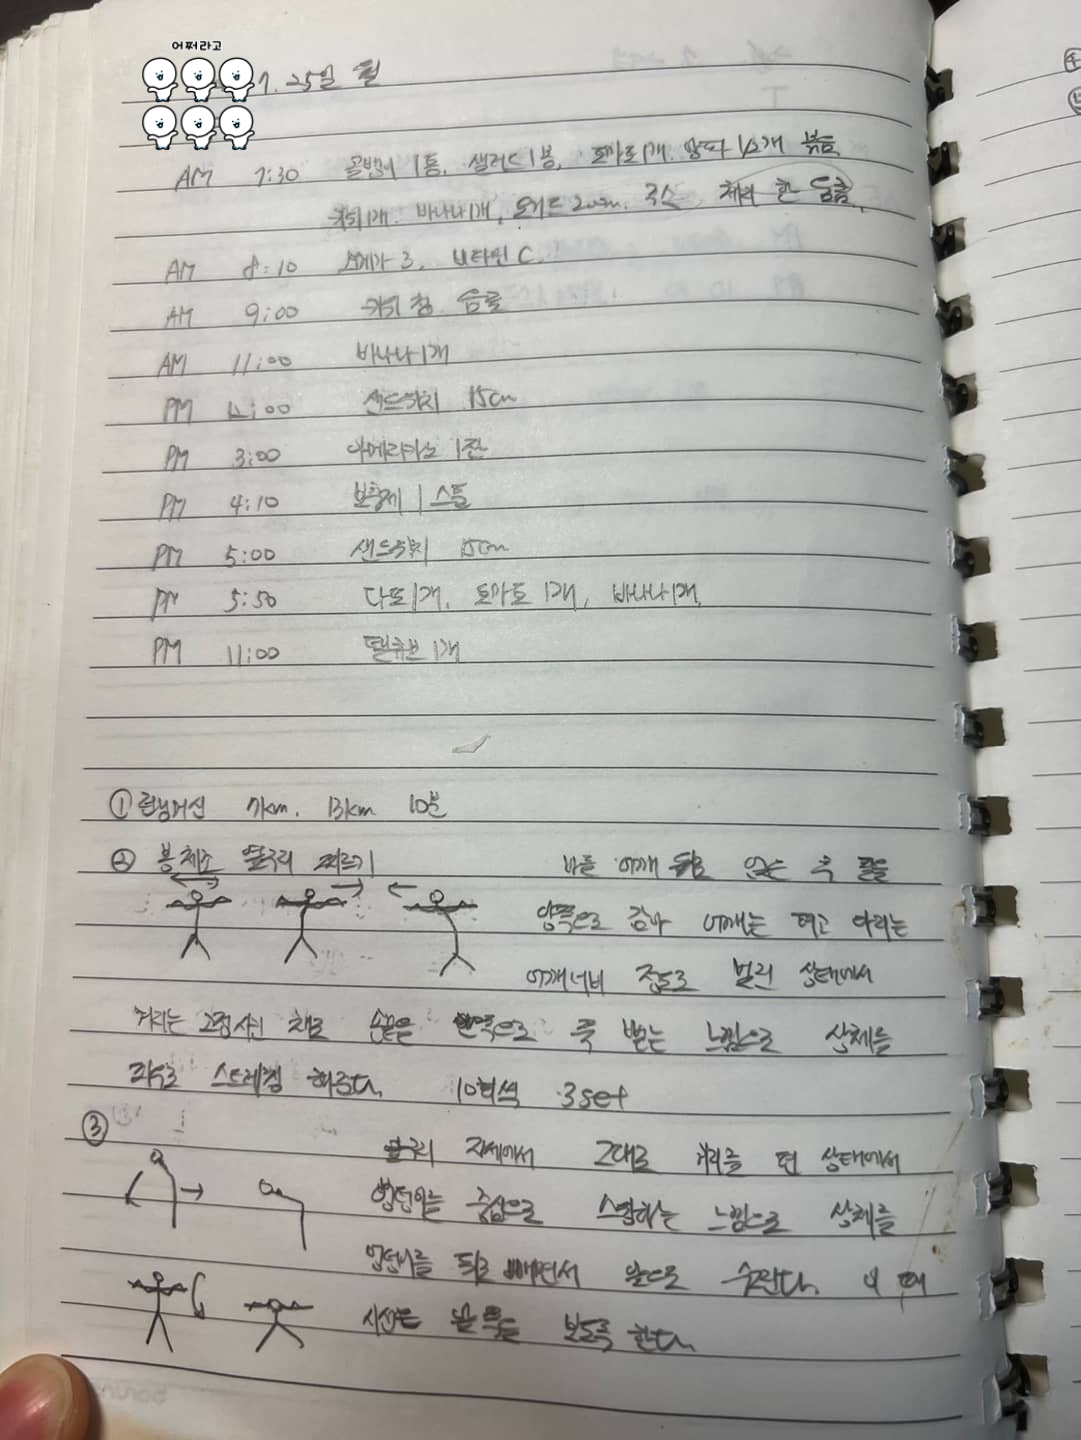 어쩌라고
7. 25일 월
AM 7:30 골뱅이 1통, 샐러드 1봉, 토마토 1개, 양파 1/2개 볶음
키위 1개, 바나나 1개, 체리 한 움큼,
AM 8:10 오메가 3, 비타민 C.
AM 9:00 키위 청 음료
AM 11:00 바나나 1개
PM 12:00 샌드위치 15cm
PM 3:00 아메리카노 1잔
PM 4:10 보충제 1 스틱
PM 5:00 샌드위치 15cm
PM 5:50 1개, 토마토 1개, 바나나 1개,
PM 11:00 1개
① 런닝머신 7km, 13km 10분
② 봉체조 옆구리 찌르기 바를 어깨 뒤로 얹은 후 팔을
양쪽으로 감아 어깨는 펴고 다리는
어깨너비 정도로 벌린 상태에서
허리는 고정시킨 채로 손끝은 쭉 뻗는 느낌으로 상체를
좌우로 스트레칭 해준다. 10회씩 3set
③ 자세에서 그대로 허리를 편 상태에서
엉덩이를 중심으로 느낌으로 상체를
엉덩이를 뒤로 빼면서 앞으로 숙인다. 이 때
시선은 보도록 한다.